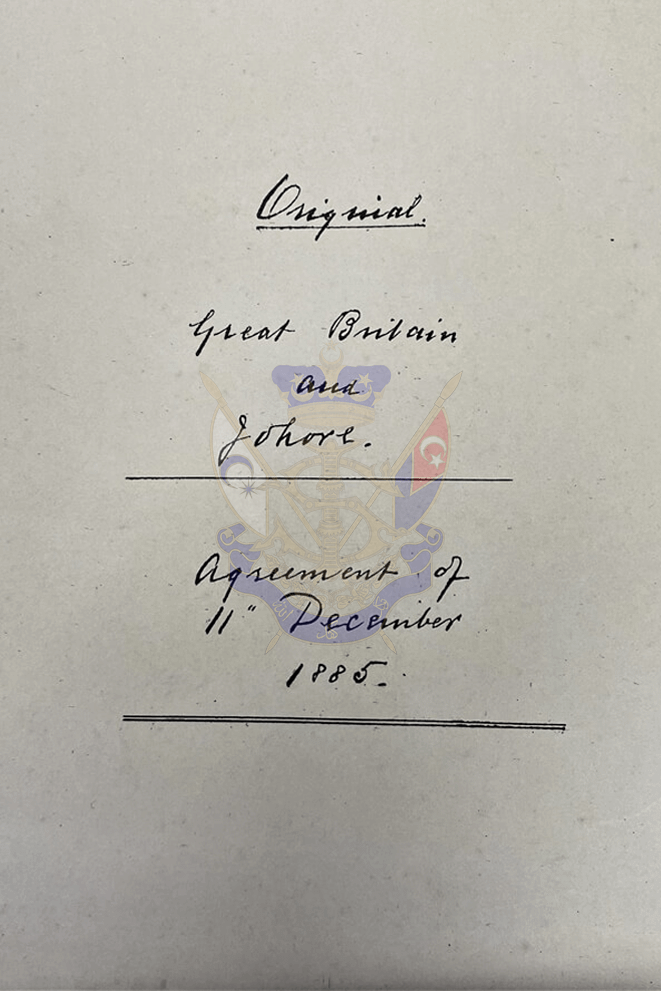 Original.
Great Britain
and
Johore.
Agreement of
11" December
1885.